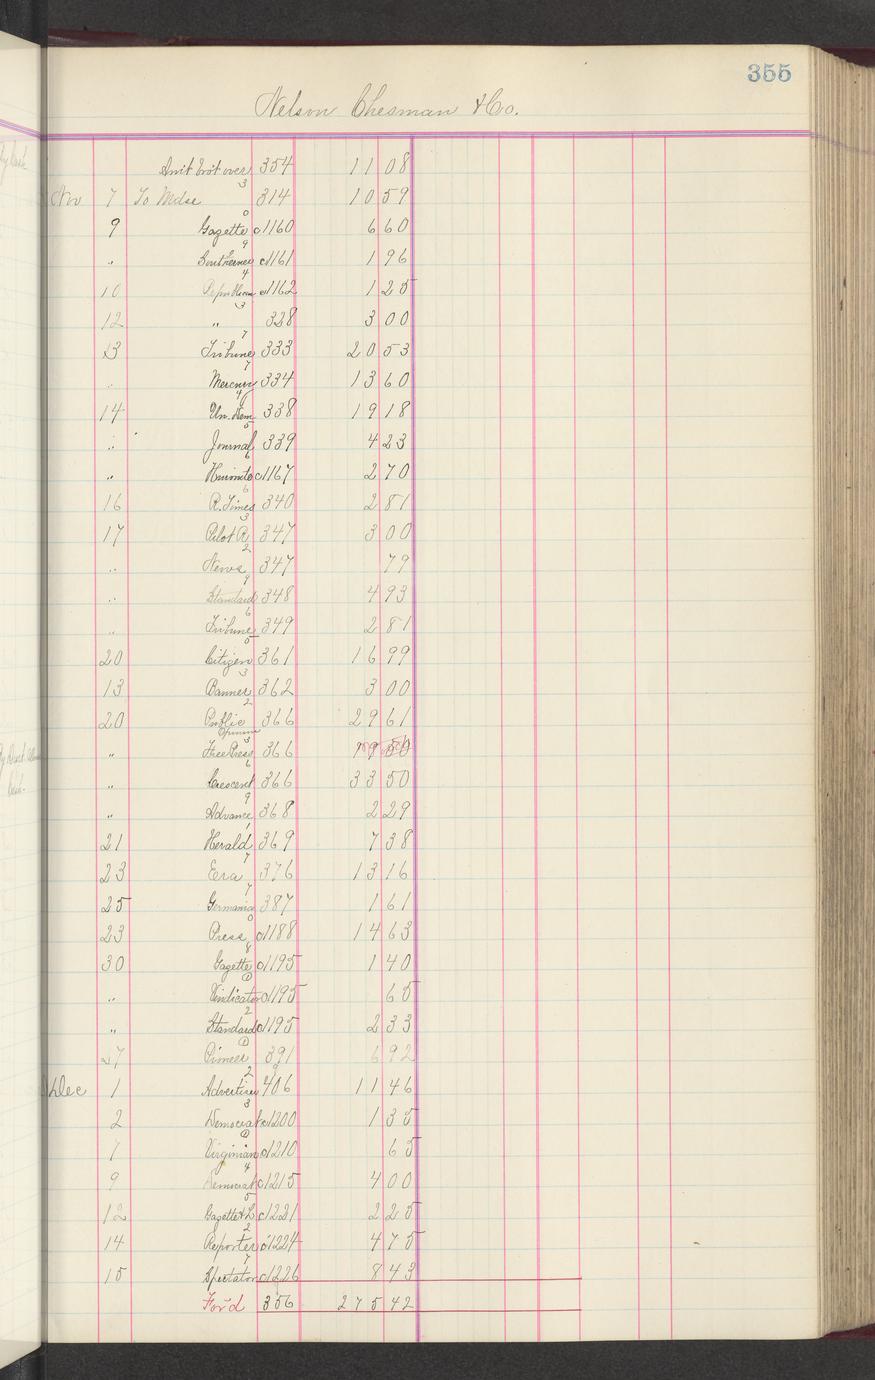 355
Nelson Chesman & Co.
Amt brot over 354 11 08
Nov 7 To Mdse 3 314 10 59
9 Gazette 0 c1160 6 60
" Southerner 9 c1161 1 96
10 Republican 4 c1162 1 25
12 " 3 328 3 00
13 Tribune 7 333 20 53
" Mercury 7 334 13 60
14 Un. Dem 4 338 19 18
" Journal 5 339 4 23
" c1167 2 70
16 R. Times 6 340 2 81
17 Pilot R 3 347 3 00
" News 2 347 79
" Standard 9 348 4 93
" Tribune 6 349 2 81
20 Citizen 5 361 16 99
13 Banner 3 362 3 00
20 Public Opinion 2 366 29 61
" Free Press 3 366
" Crescent 6 366 33 50
" Advance 9 368 2 29
21 Herald 1 369 7 38
23 Era 7 376 13 16
25 Germania 7 387 1 61
23 Press 0 c1188 14 63
30 Gazette 8 c1195 1 40
" Vindicator 1 c1195 65
" Standard 2 c1195 2 33
27 Pioneer 1 391 6 92
Dec 1 Advertiser 2 406 11 46
2 Democrat 3 c1200 1 35
7 Virginian 1 c1210 65
9 Democrat 4 c1215 4 00
12 Gazette & L 5 c1221 2 25
14 Reporter 2 c1224 4 75
15 Spectator 7 c1226 8 43
For'd 356 275 42